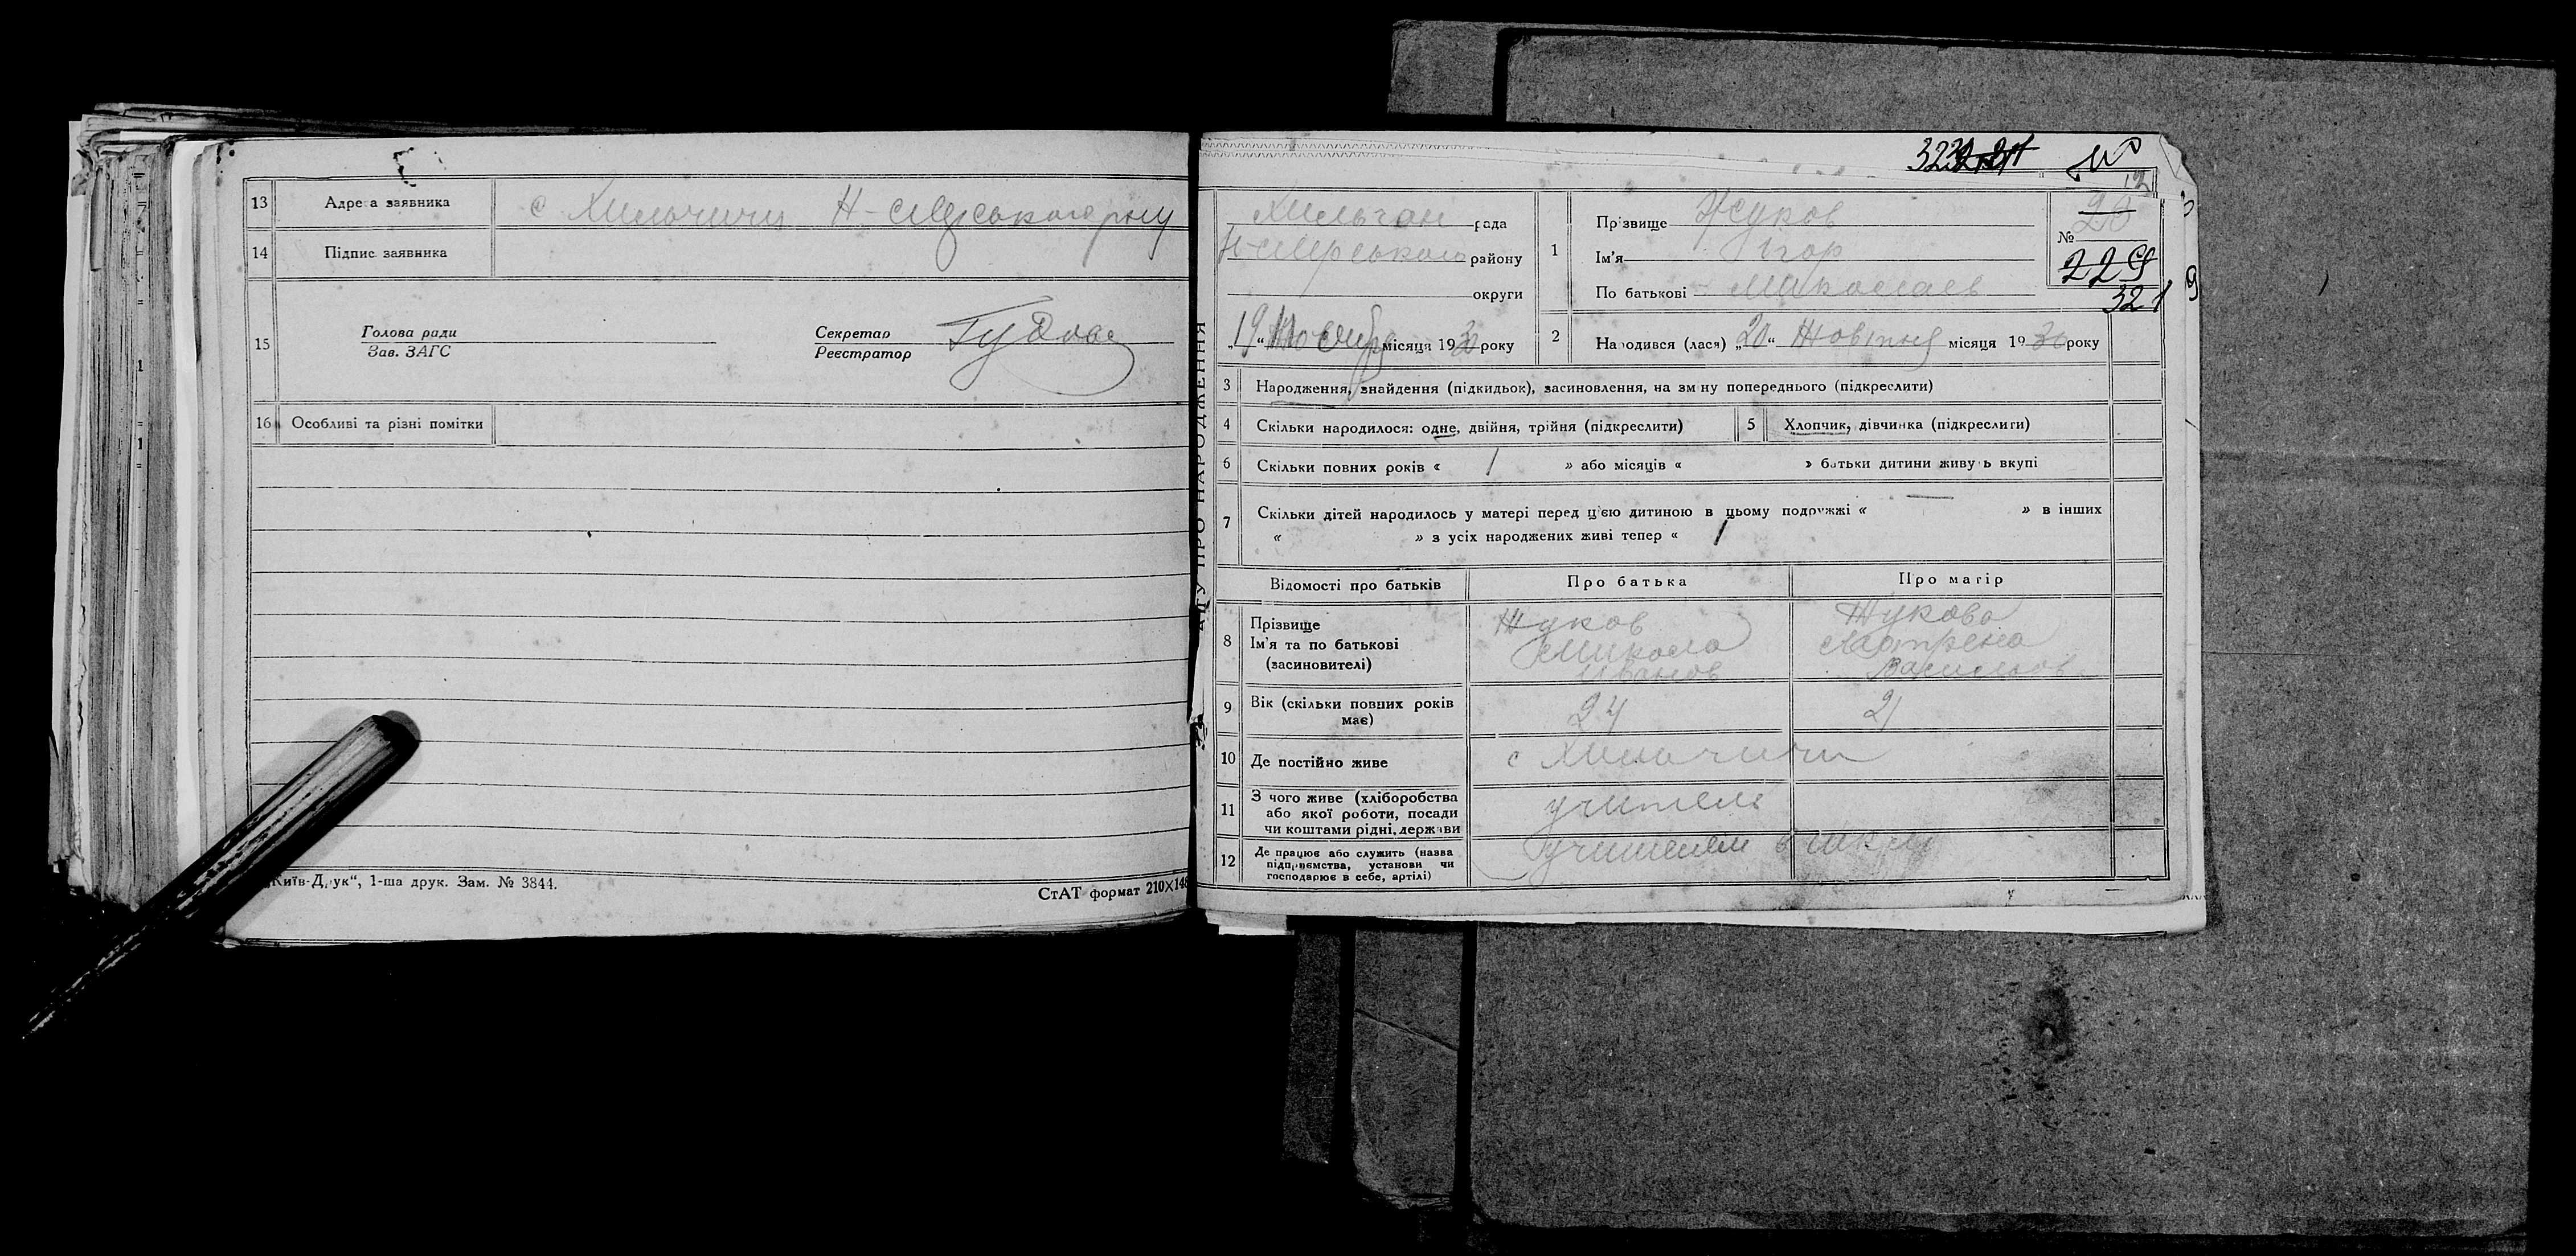 13 Адреса заявника с Хильчичи Н-Сіверського р-ну
14 Підпис заявника
15 Голова ради
Зав. ЗАГС
Секретар
Реєстратор
16 Особливі та різні помітки
„Київ-Друк“, 1-ша друк. Зам. № 3844.
СтАТ формат 210×148
АКТУ ПРО НАРОДЖЕННЯ
рада
району
округи
„19“ місяця 1930 року
1 Прізвище Жуков
Ім'я Ігор
По батькові Миколаев
№
229
321
2 Народився (лася) „20“ Жовтня місяця 1930 року
3 Народження, знайдення (підкидьок), засиновлення, на зміну попереднього (підкреслити)
4 Скільки народилося: одне, двійня, трійня (підкреслити)
5 Хлопчик, дівчинка (підкреслити)
6 Скільки повних років « 1 » або місяців « » батьки дитини живуть вкупі
7 Скільки дітей народилось у матері перед цією дитиною в цьому подружжі « — » в інших
« » з усіх народжених живі тепер « 1
Відомості про батьків Про батька Про матір
8 Прізвище
Ім'я та по батькові
(засиновителі)
Жуков
Микола
Иванов
Жукова
Мотрена
Васильов
9 Вік (скільки повних років
має)
24 21
10 Де постійно живе с Хильчичи
11 З чого живе (хліборобства
або якої роботи, посади
чи коштами рідні, держави
учитель
12 Де працює або служить (назва
підприємства, установи чи
господарює в себе, артілі)
учителем в школі